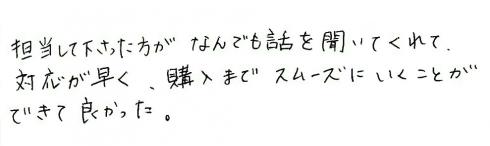 担当して下さった方が なんでも話を聞いてくれて、
対応が早く、購入まで スムーズに いくことが
できて 良かった。